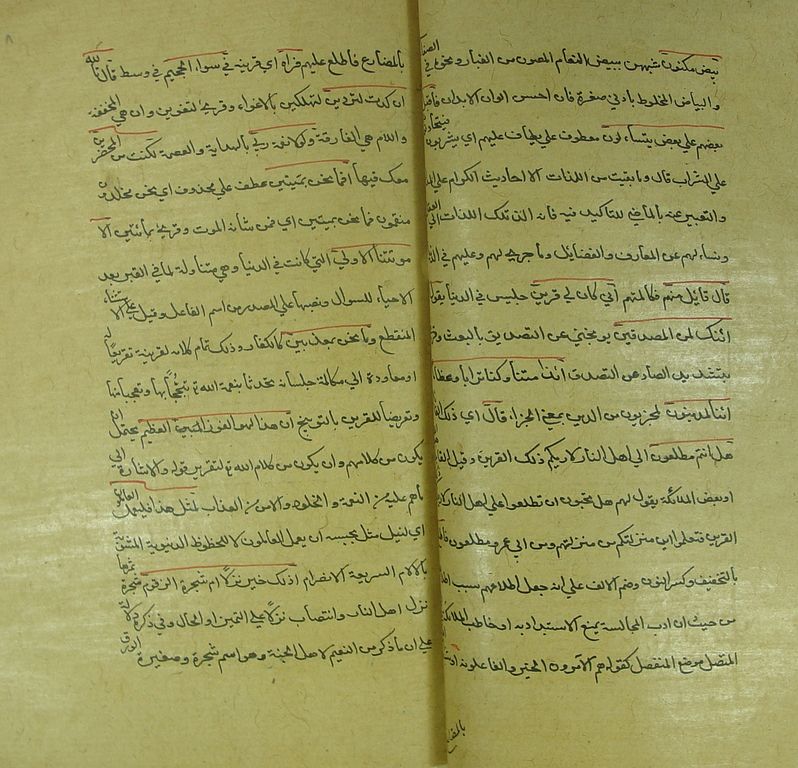 بيض مكنون شبههن ببيض النعام المصون من الغبار ونحوه في الصفا
والبياض المخلوط بادني صفرة فان احسن الوان الابدان فاقبل
بعضهم علي بعض يتساءلون معطوف علي يطاف عليهم اي يشربون فيتحادثون
علي الشراب قال وما بقيت من اللذات الا احاديث الكرام علي
والتعبير عنه بالماضي للتاكيد فيه فانه الذ تلك اللذات الي
وتساءلهم عن المعارف والفضايل وما جري لهم وعليهم في
قال قايل منهم في مكالمتهم اني كان لي قرين جليس في الدنيا يقول
ائنك لمن المصدقين يوبخني عن التصديق بالبعث وقرئ
بتشديد الصاد من التصدق ائذا متنا وكنا ترابا وعظاما
ائنا لمدينون لمجزيون من الدين بمعني الجزاء قال اي ذلك
هل انتم مطلعون الي اهل النار لاريكم ذلك القرين وقيل
او بعض الملائكة يقول لهم هل تحبون ان تطلعوا علي اهل النار
القرين فتعلموا اين منزلتكم من منزلتهم وعن ابي عمرو مطلعون
بالتخفيف وكسر النون وضم الالف علي انه جعل اطلاعهم سبب
من حيث ان ادب المجالسة يمنع الاستبداد به او خاطب الملائكة
المتصل موضع المنفصل كقولهم الآمرون الخير والفاعلونه
بالمضارع فاطلع عليهم فرآه اي قرينه في سواء الجحيم في وسطه قال تالله
ان كدت لتردين لتهلكني بالاغواء وقرئ لتغوين وان هي المخففة
واللام هي الفارقة ولولا نعمة ربي بالهداية والعصمة لكنت من المحضرين
معك فيها افما نحن بميتين عطف علي محذوف اي نحن مخلدون
منعمون فما نحن بميتين اي فمن شانه الموت وقرئ بمائتين الا
موتتنا الاولي التي كانت في الدنيا وهي متناولة لما في القبر بعد
الاحياء للسوال ونصبها علي المصدر من اسم الفاعل وقيل علي الاستثناء
المنقطع وما نحن بمعذبين كالكفار وذلك تمام كلامه لقرينه تقريعا له
او معاودة الي مكالمة جلسائه تحدثا بنعمة الله تبجحا بها وتعجبا منها
وتعريضا للقرين بالتوبيخ ان هذا لهو الفوز العظيم يحتمل ان
يكون من كلامهم وان يكون من كلام الله لتقرير قوله والاشارة الي
ما هم عليه من النعمة والخلود والامن من العذاب لمثل هذا فليعمل العاملون
اي لنيل مثل يجب ان يعمل العاملون لا للحظوظ الدنيوية المشوبة
بالالام السريعة الانصرام اذلك خير نزلا ام شجرة الزقوم شجرة ثمرها
نزل اهل النار وانتصاب نزلا علي التمييز او الحال وفي ذكره دلالة
علي ان ما ذكر من النعيم لاهل الجنة وهو اسم شجرة صغيرة الورق